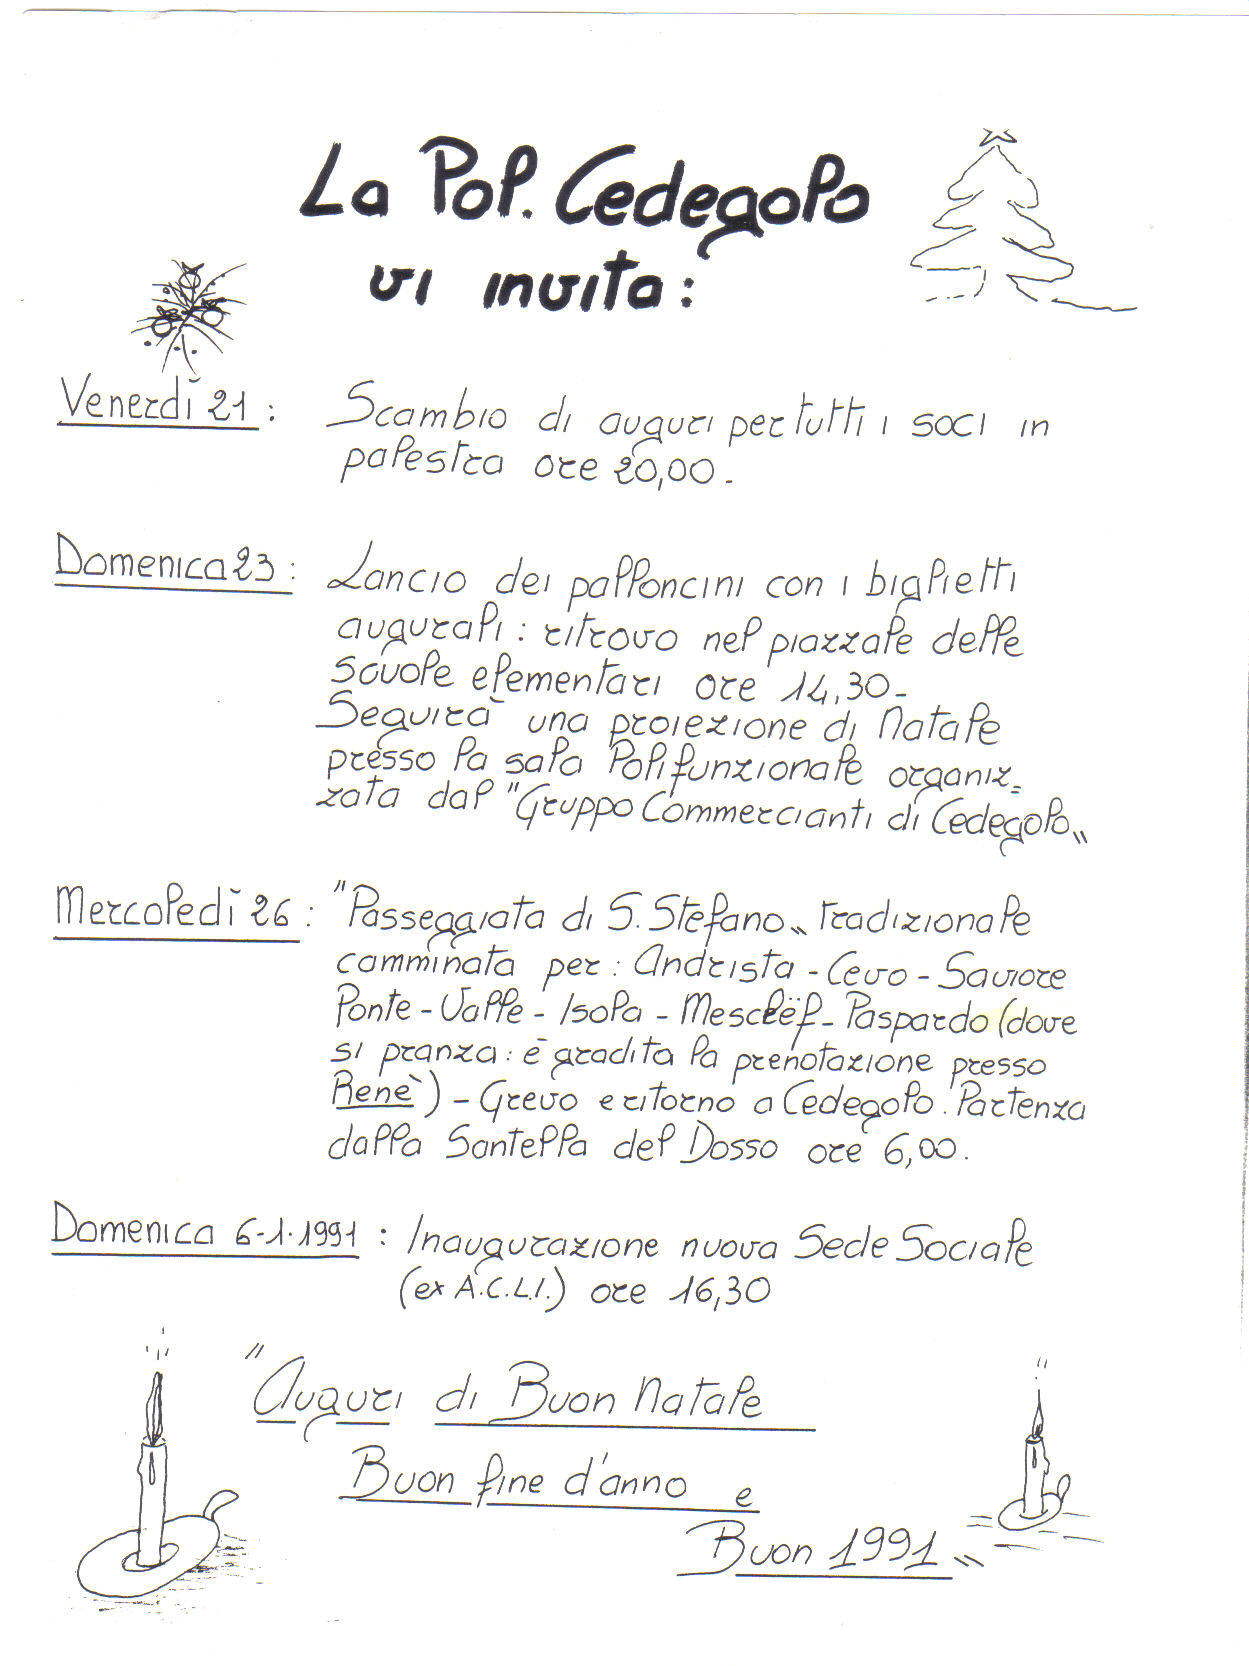 La Pol. Cedegolo
vi invita:
Venerdì 21: Scambio di auguri per tutti i soci in
palestra ore 20,00.
Domenica 23: Lancio dei palloncini con i biglietti
augurali: ritrovo nel piazzale delle
scuole elementari ore 14,30-
Seguirà una proiezione di Natale
presso la sala Polifunzionale organiz=
zata dal "Gruppo Commercianti di Cedegolo"
Mercoledì 26: "Passeggiata di S. Stefano" tradizionale
camminata per: Andrista - Cevo - Saviore
Ponte - Valle - Isola - Mesclëf - Paspardo (dove
si pranza: è gradita la prenotazione presso
Renè) - Grevo e ritorno a Cedegolo. Partenza
dalla Santella del Dosso ore 6,00.
Domenica 6-1-1991: Inaugurazione nuova Sede Sociale
(ex A.C.L.I.) ore 16,30
"Auguri di Buon Natale
Buon fine d'anno e
Buon 1991"